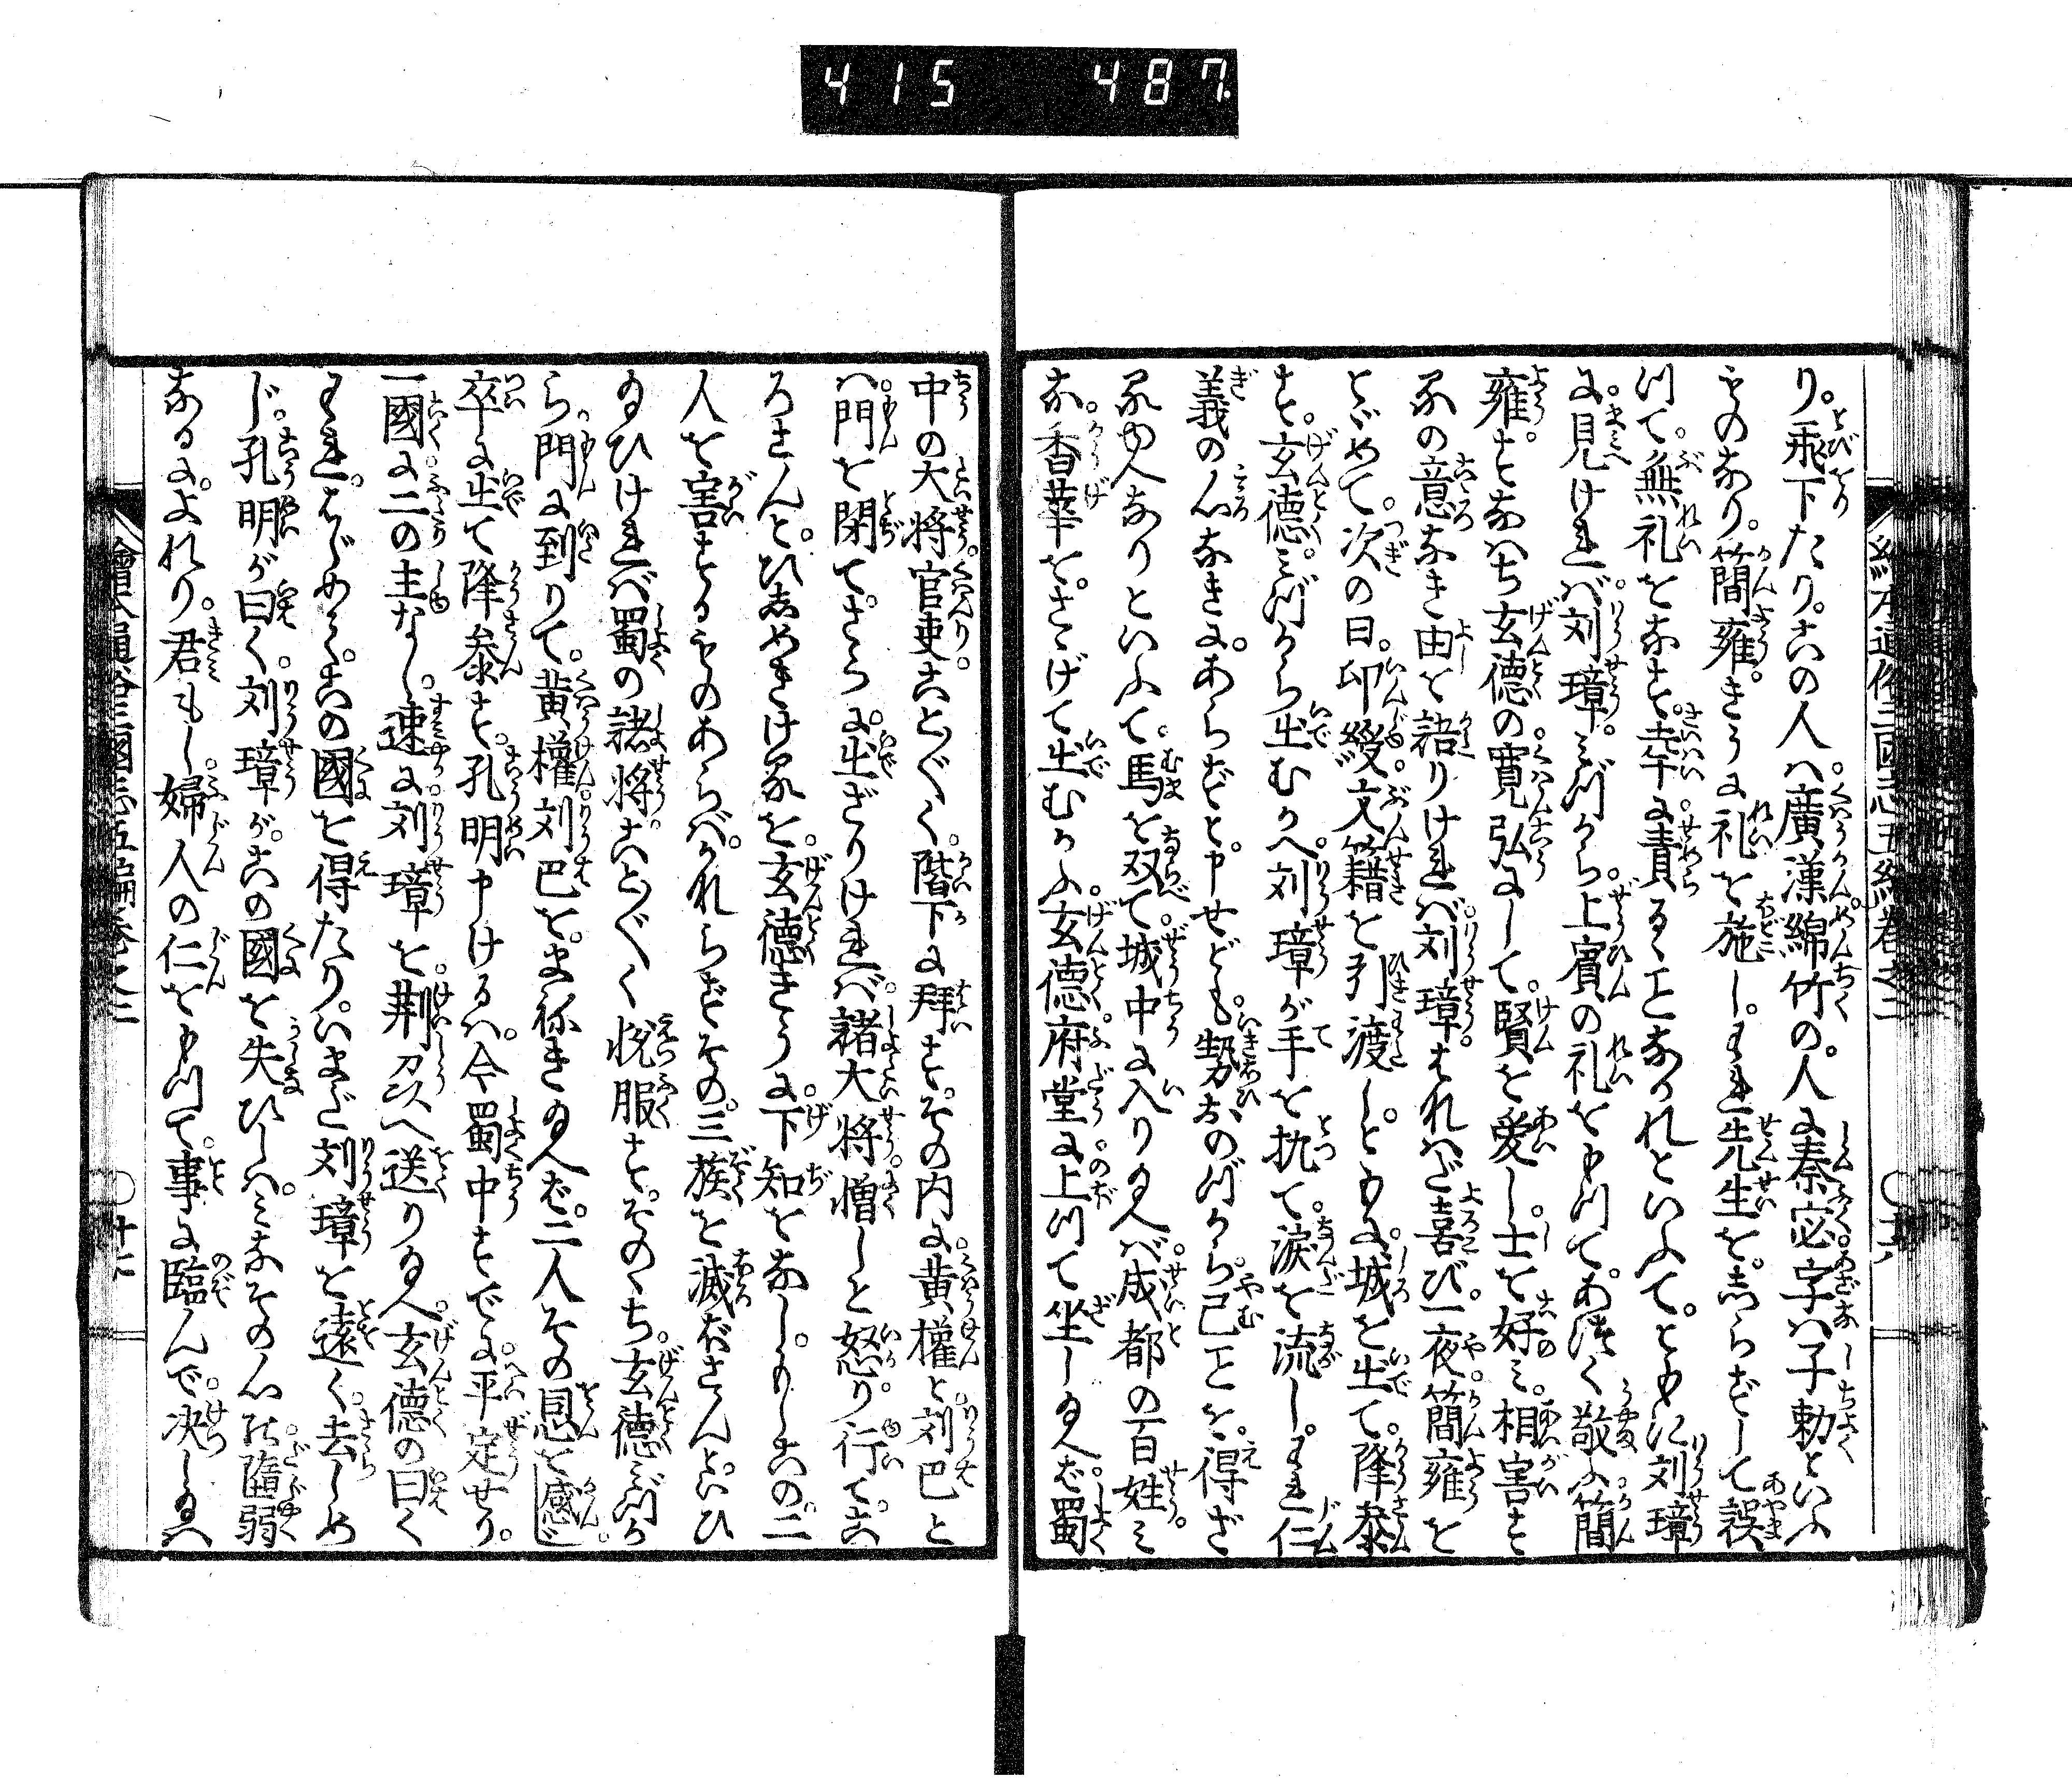 415 487
り。飛下たり。この人ハ廣漢綿竹の人に秦宓字ハ子勅といふ
ものなり。簡雍きうに礼を施し。われ先生を。しらずして誤
つて。無礼をなす。幸に責ることなかれといふて。ともに刘璋
に。見けれバ。刘璋。みづから。上賓の礼をもつて。あつく敬ふ簡
雍。すなハち玄徳の寛弘にして。賢を愛し。士を好ミ。相害す
るの意なき由を語りけれバ。刘璋。はなハだ喜び。一夜簡雍を
とゞめて。次の日。印綬。文籍を引渡し。ともに。城を出て。降参
す。玄徳。ミづから出むかへ。刘璋が手を执て。涙を流し。われ仁
義の心なきに。あらずと。申せども。勢おのづから。已ことを。得ざ
るゆへなりといふて。馬を双て。城中に入り玉へバ。成都の百姓ミ
な香華を。さゝげて出むかふ。玄徳府堂に上つて坐し玉へば。蜀
中の大将。官吏ことごく。階下に拜す。その内に。黄權と。刘巴と
ハ門を閉て。さらに。出ざりけれバ。諸大将憎しと怒り。行て。こ
ろさんと。ひしめきけるを。玄徳きうに。下知をなし。もしこの。二
人を害するものあらバ。かれらが。その。三族を滅ぼさんと。いひ
玉ひけれバ蜀の諸将。ことごく悦服す。そのゝち。玄徳みづか
ら。門に到りて。黄權刘巴を。まねき玉へば。二人その恩を感じ
卒に出て降参す。孔明申けるハ。今蜀中すでに。平定せり。
一國に。二の主なし。速に刘璋を。荆刕へ送り玉へ。玄徳の曰く
われ。はじめて。この國を得たり。いまだ刘璋を遠く。去しめ
じ。孔明が曰く。刘璋が。この國を失ひしハ。ミなその心の。隋弱
なるに。よれり。君もし婦人の仁をもつて。事に臨んで。决し玉ハ